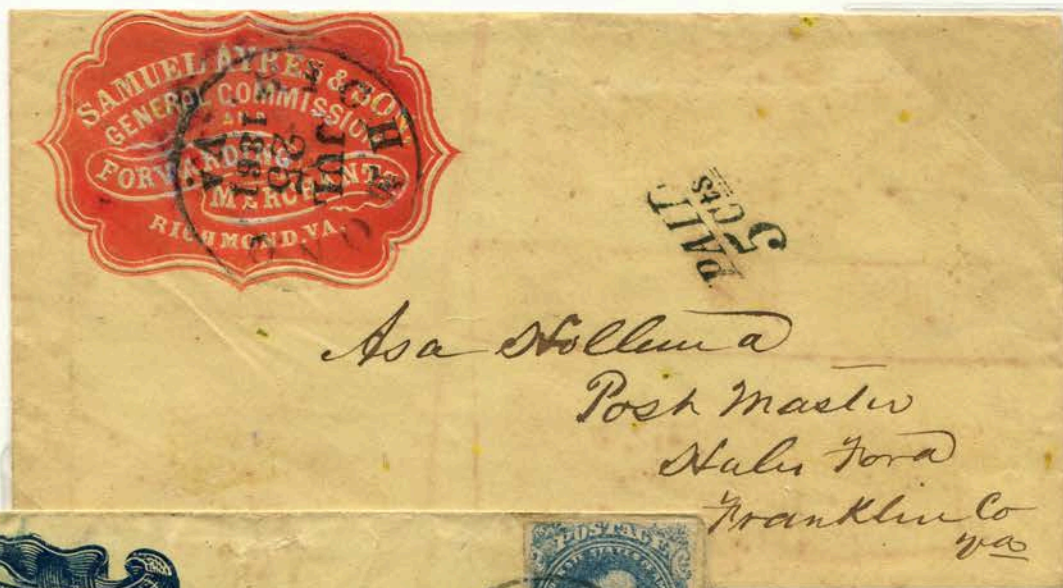 SAMUEL AYRES & SON
GENERAL COMMISSION
AND
FORWARDING
MERCHANTS
RICHMOND, VA.
RICHMOND VA.
JUL
1861
PAID
5 cts
Asa Holland
Post Master
Hales Ford
Franklin Co
Va
POSTAGE